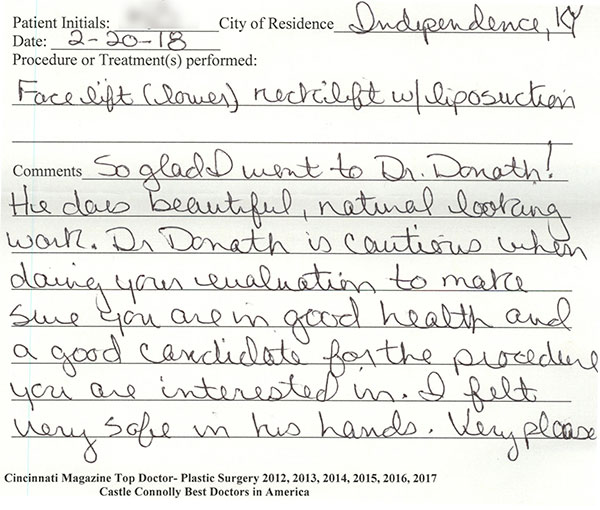 Patient Initials: City of Residence Independence, KY
Date: 2-20-18
Procedure or Treatment(s) performed:
Facelift (lower) necklift w/liposuction
Comments So glad I went to Dr. Donath!
He does beautiful, natural looking
work. Dr Donath is cautious when
doing your evaluation to make
sure you are in good health and
a good candidate for the procedure
you are interested in. I felt
very safe in his hands. Very please
Cincinnati Magazine Top Doctor- Plastic Surgery 2012, 2013, 2014, 2015, 2016, 2017
Castle Connolly Best Doctors in America